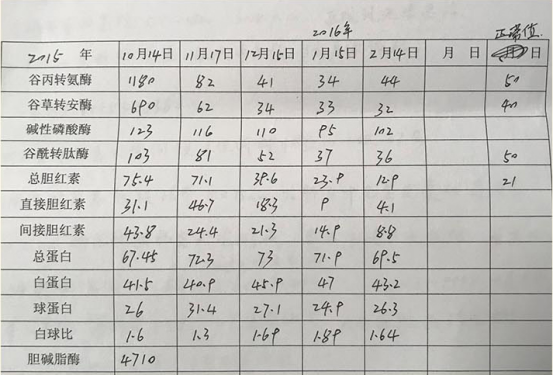 2016年
正常值
2015 年 10月14日 11月17日 12月15日 1月15日 2月14日 月 日 日
谷丙转氨酶 1180 82 41 34 44 50
谷草转安酶 690 62 34 33 32 40
碱性磷酸酶 123 116 110 95 102
谷酰转肽酶 103 81 52 37 36 50
总胆红素 75.4 71.1 39.6 23.9 12.9 21
直接胆红素 31.1 46.7 18.3 9 4.1
间接胆红素 43.8 24.4 21.3 14.9 8.8
总蛋白 67.45 72.3 73 71.9 69.5
白蛋白 41.5 40.9 45.9 47 43.2
球蛋白 26 31.4 27.1 24.9 26.3
白球比 1.6 1.3 1.69 1.89 1.64
胆碱脂酶 4710